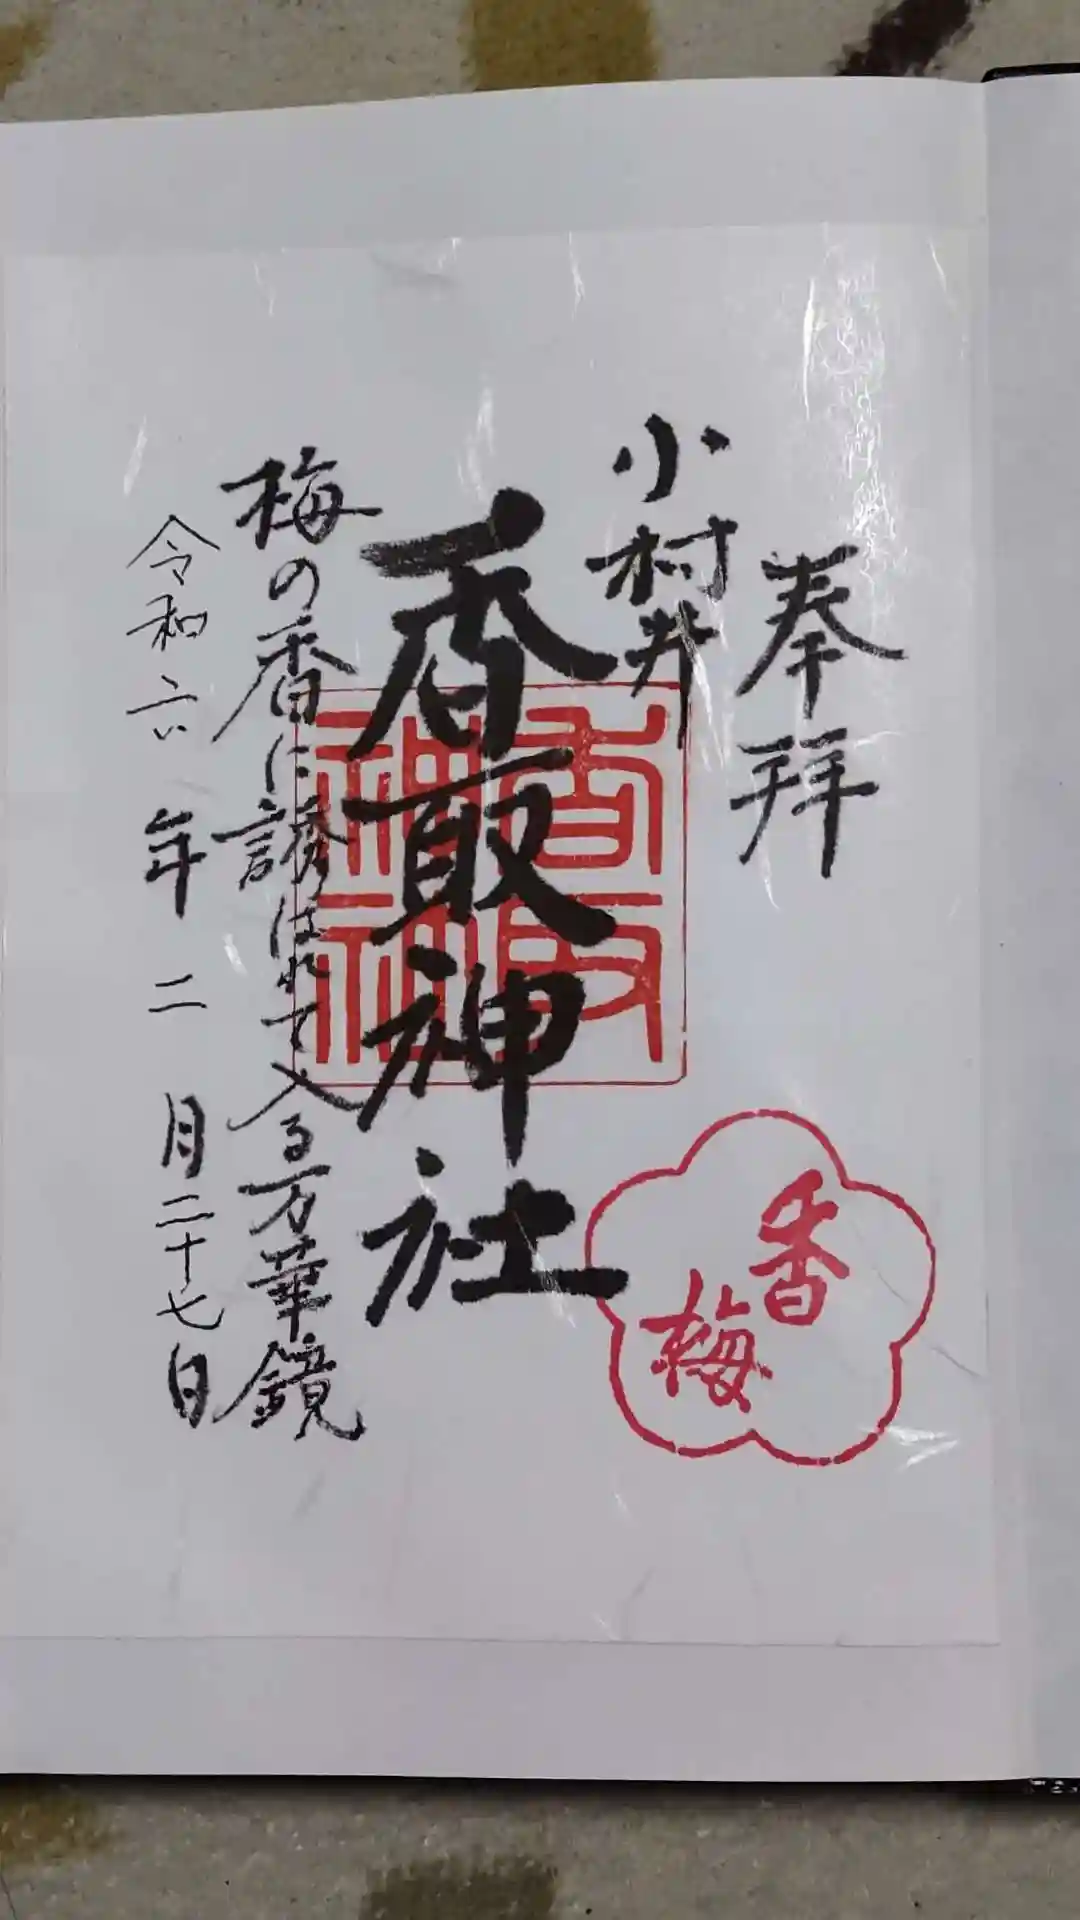 奉拝
小村井
香取神社
香取神社
梅の香に誘はれて入る万華鏡
令和六年二月二十七日
香梅